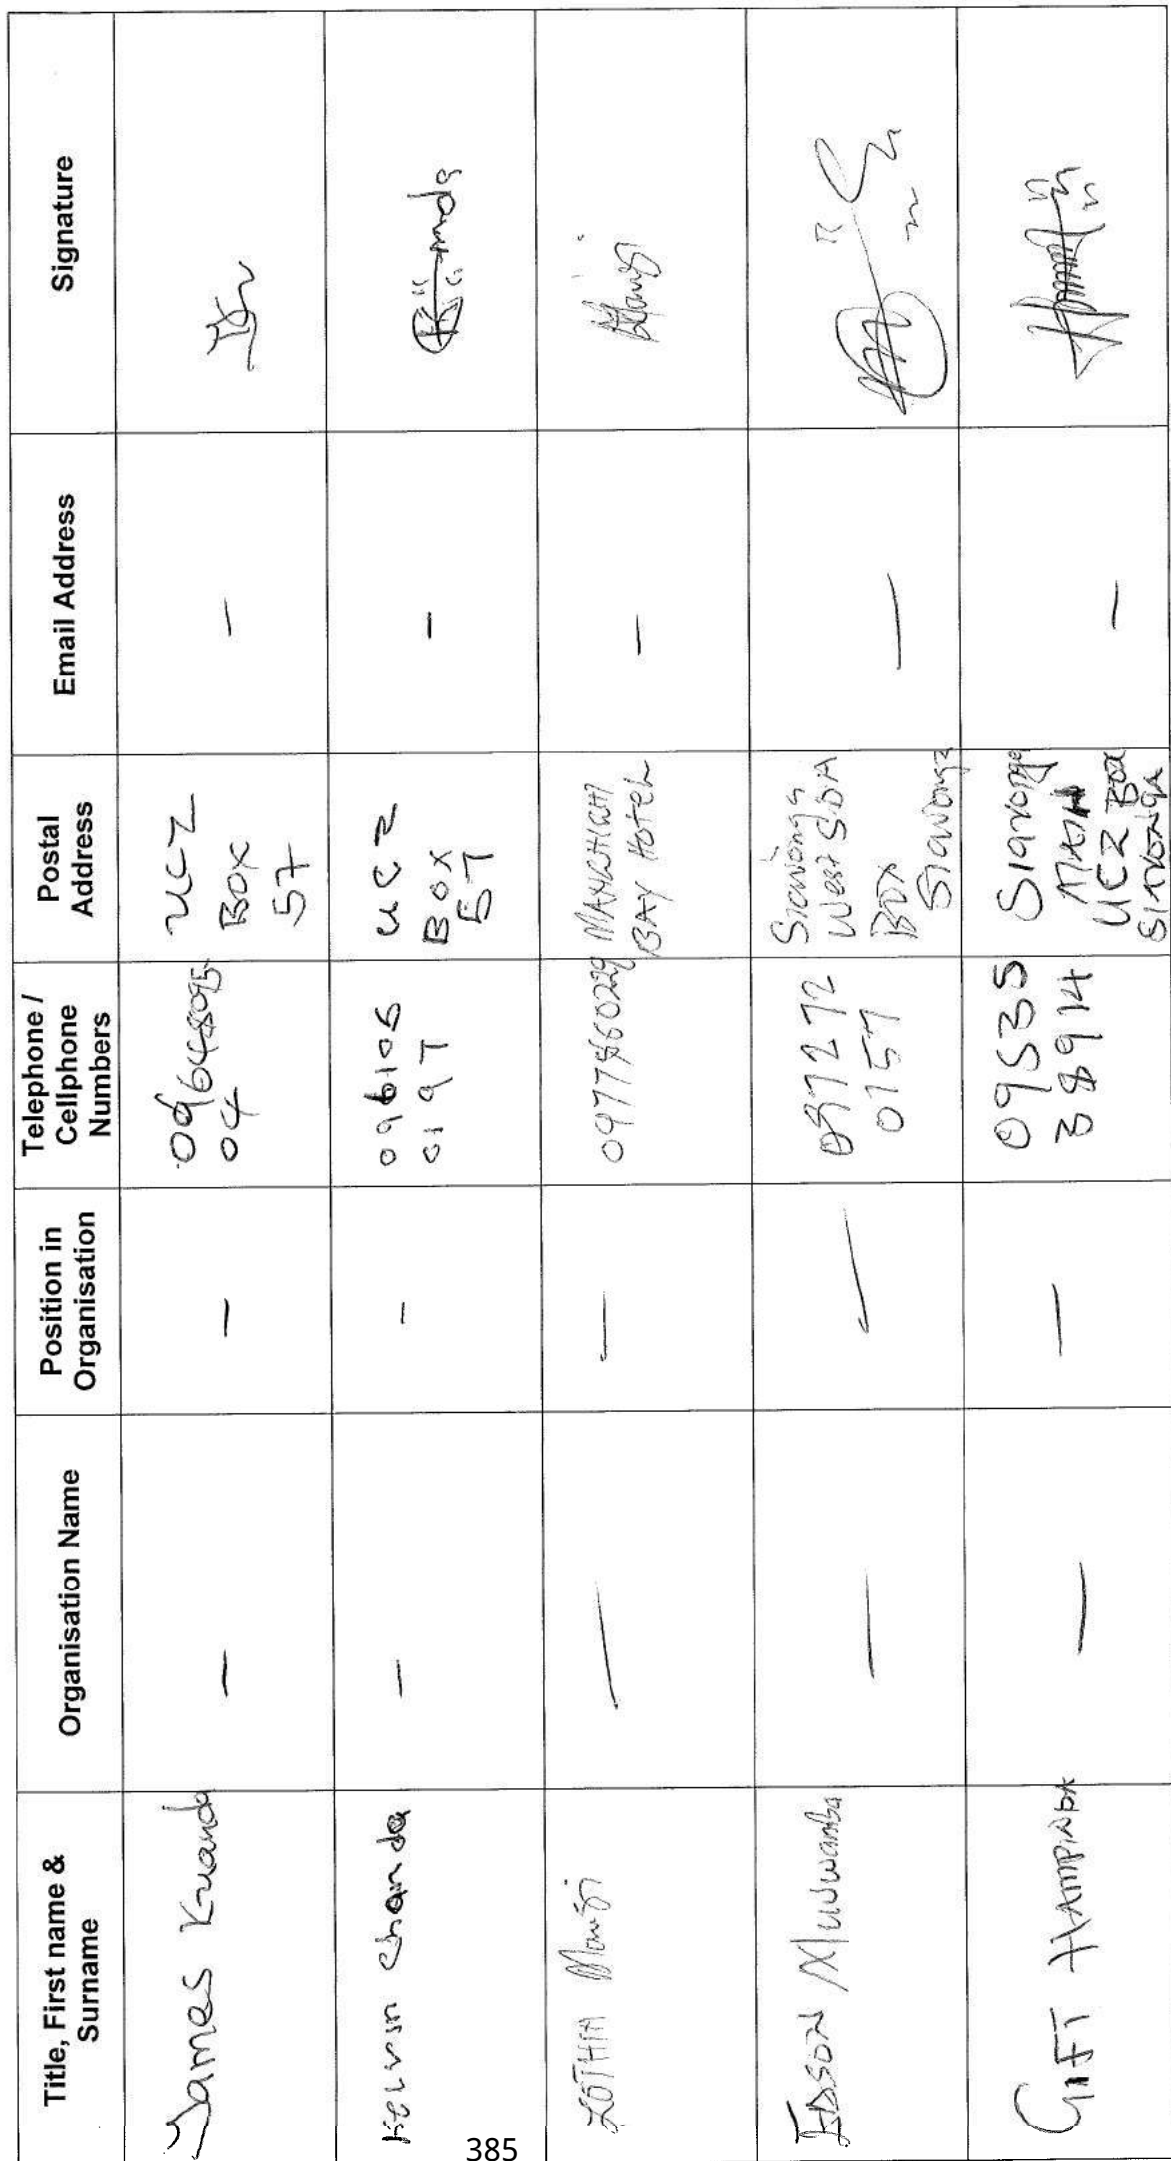 Title, First name &
Surname
Organisation Name
Position in
Organisation
Telephone /
Cellphone
Numbers
Postal
Address
Email Address
Signature
James
-
-
04
UCZ
BOX
57
-
Kelvin Chanda
-
-
096105
0197
UCZ
BOX
57
-
—
—
0977860229
BAY HOTEL
—
EDSON Muwamba
—
—
097272
0157
Siavonga
West SDA
BOX
Siavonga
—
GIFT HAMPINDA
—
—
09535
38914
Siavonga
MAIN
UCZ Box
—
385